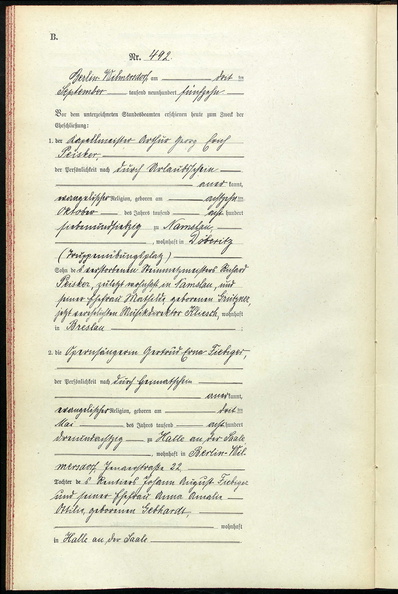 B.
Nr. 492.
Berlin-Wilmersdorf am dritten
September tausend neunhundert fünfzehn
Vor dem unterzeichneten Standesbeamten erschienen heute zum Zweck der
Eheschließung:
1. der Kapellmeister Arthur Georg Erich
Peisker,
der Persönlichkeit nach durch Urlaubsschein
anerkannt,
evangelischer Religion, geboren am achtzehnten
Oktober des Jahres tausend acht hundert
siebenundsiebzig zu Namslau,
, wohnhaft in Döberitz
(Truppenübungsplatz)
Sohn des verstorbenen Steinmetzmeisters
Peisker, zuletzt wohnhaft in Namslau, und
seiner Ehefrau Mathilde geborenen
jetzt Musikdirektor wohnhaft
in Breslau
2. die Opernsängerin Gertrud Erna Fiebiger,
der Persönlichkeit nach durch Heimatschein
anerkannt,
evangelischer Religion, geboren am dritten
Mai des Jahres tausend acht hundert
dreiundachtzig zu Halle an der Saale
, wohnhaft in Berlin-Wil-
mersdorf, Jenaerstraße 22,
Tochter des Rentiers Johann August Fiebiger
und seiner Ehefrau Anna Amalie
Ottilie, geborenen Gebhardt,
, wohnhaft
in Halle an der Saale